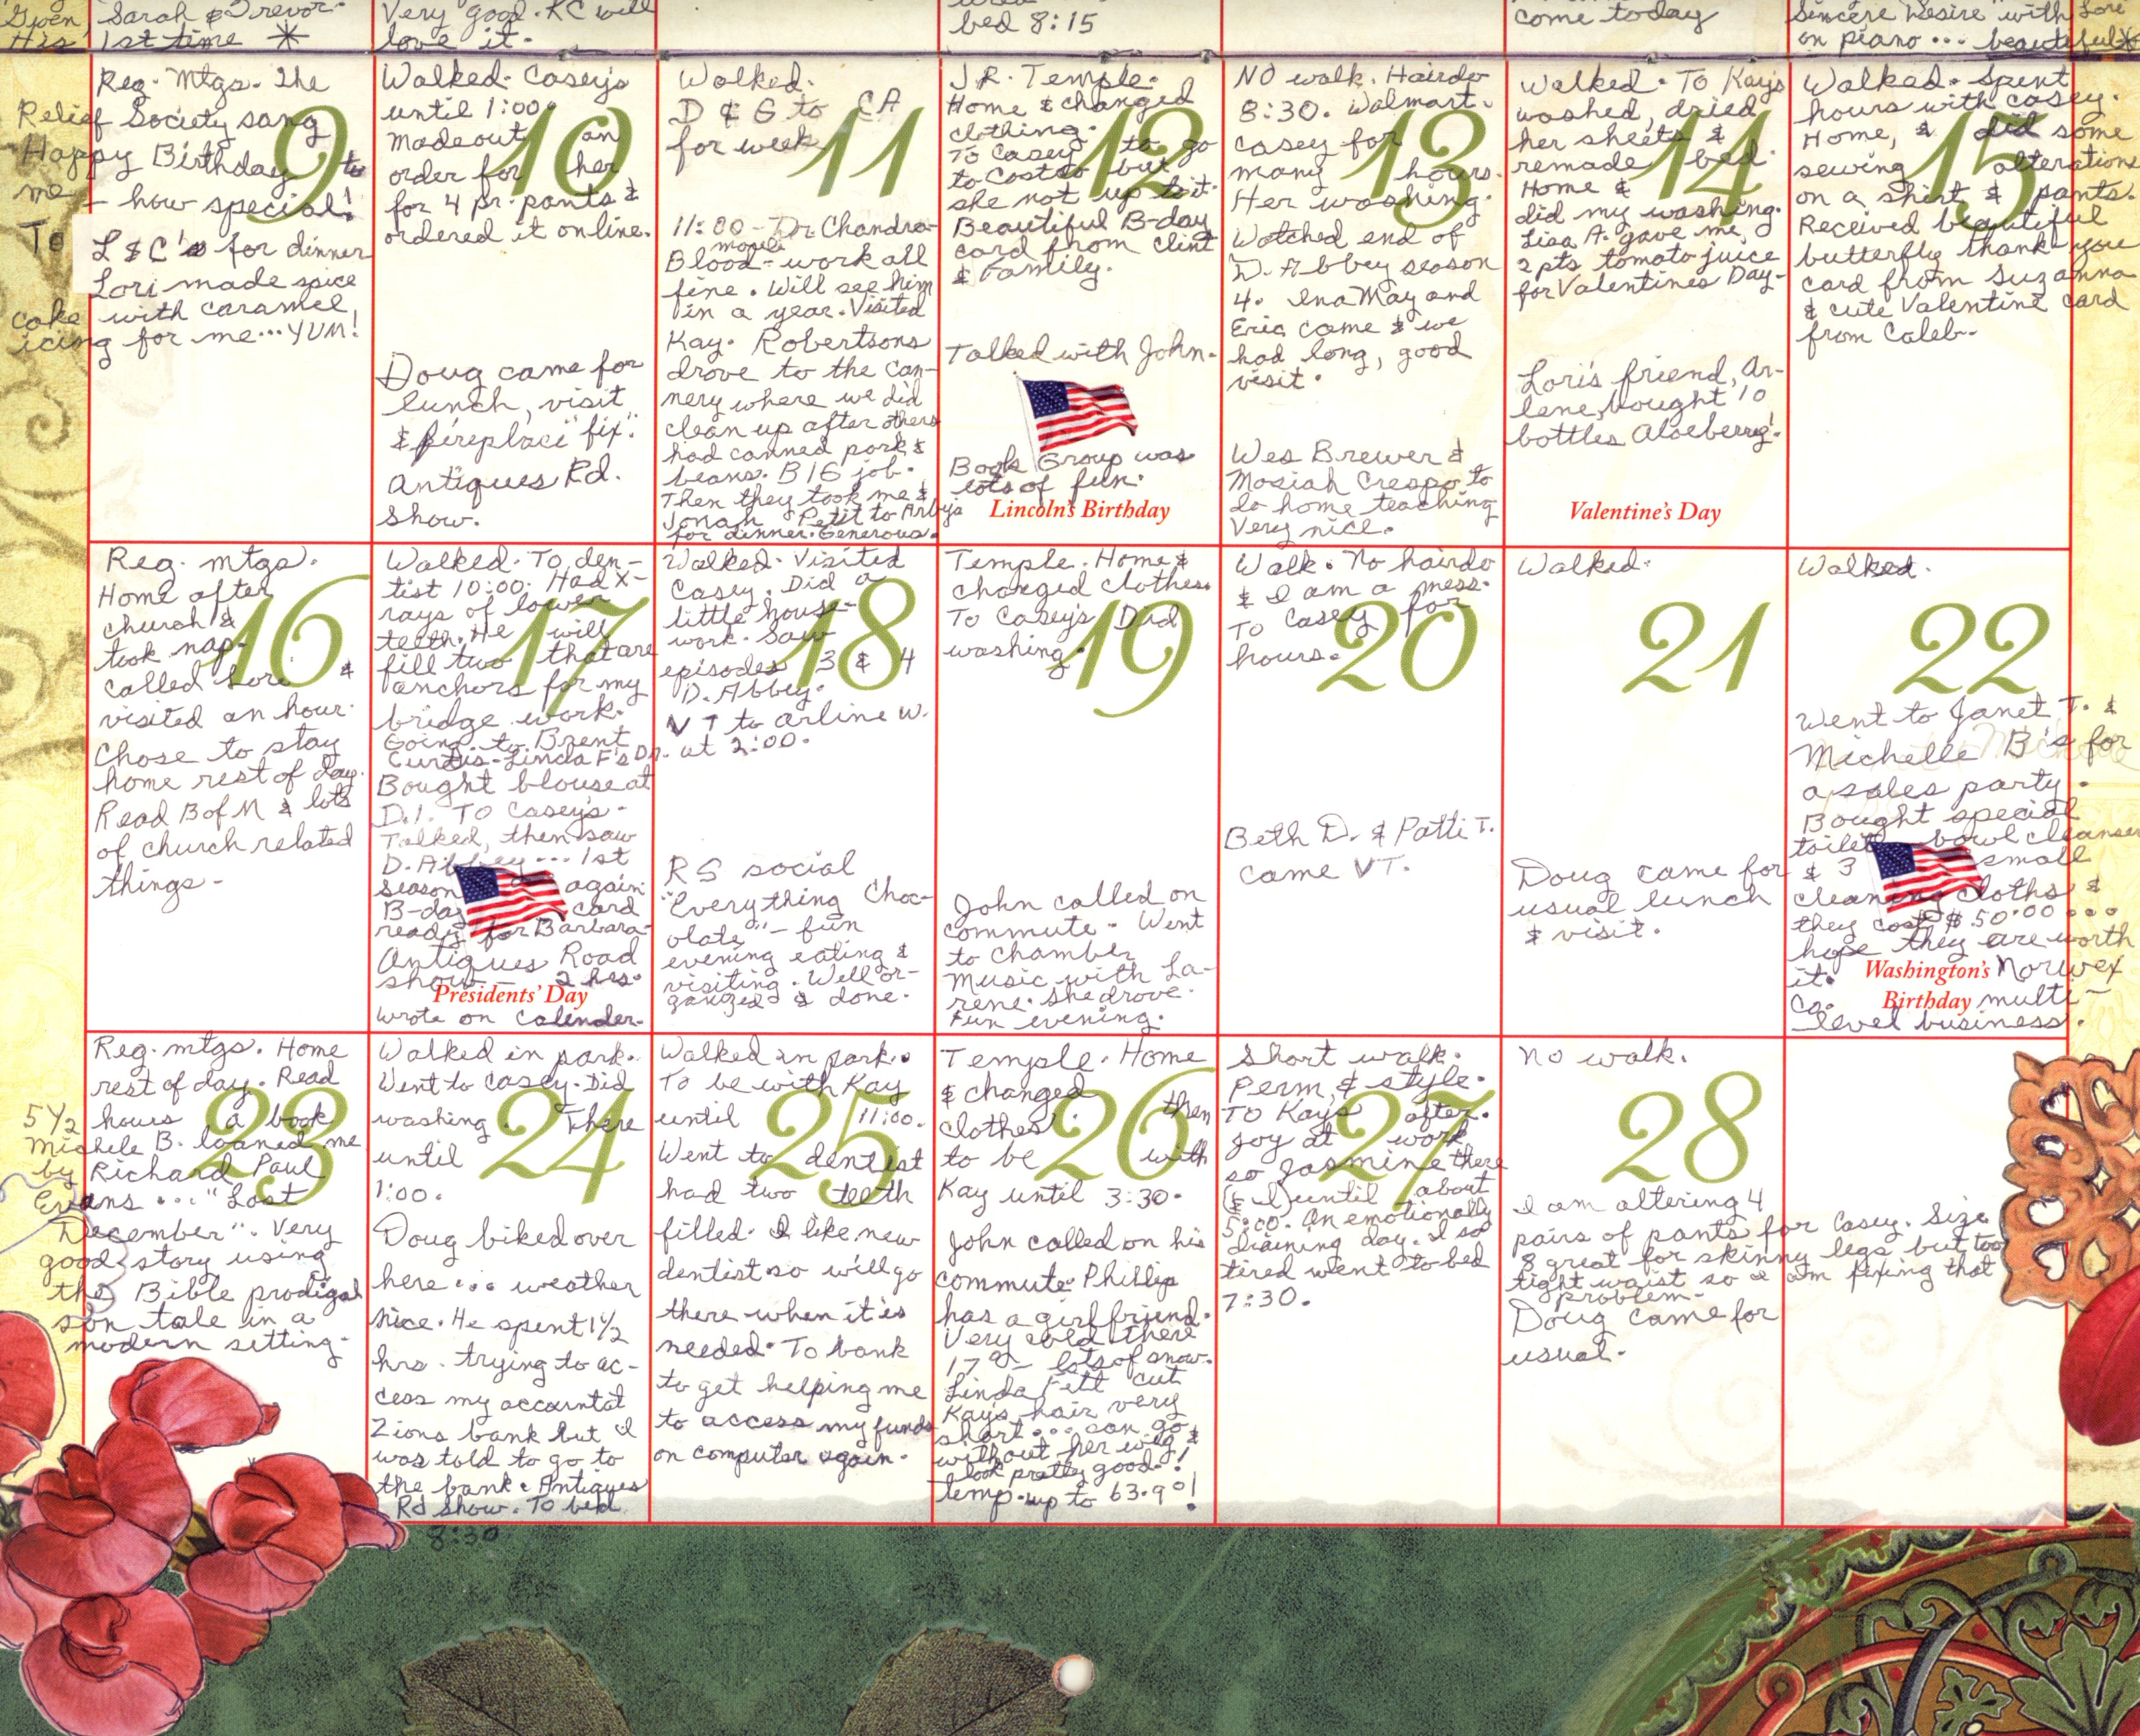 Given
His
Sarah & Trevor.
1st time *
Very good. KC will
love it.
bed 8:15
come today
Sincere Desire" with Lori
on piano ... beautiful *
Reg. Mtgs. The
Relief Society sang
Happy Birthday to
me - how special!
9
To L & C's for dinner
Lori made spice
cake with caramel
icing for me... YUM!
Walked. Casey's
until 1:00.
Made out an
order for her
for 4 pr. pants &
ordered it online.
10
Doug came for
lunch, visit
& fireplace "fix".
Antiques Rd.
Show.
Walked.
D & G to CA
for week
11
11:00 - Dr. Chandra-
mouli
Blood-work all
fine. Will see him
in a year. Visited
Kay. Robertsons
drove to the can-
nery where we did
clean up after others
had canned pork &
beans. BIG job.
Then they took me &
Jonah Petit to Arby's
for dinner. Generous.
J.R. Temple.
Home & changed
clothing.
To Casey to go
to Costco but
she not up to it.
Beautiful B-day
card from Clint
& Family.
12
Talked with John.
Book Group was
lots of fun.
Lincoln's Birthday
NO walk. Hairdo
8:30. Walmart.
Casey for
many hours.
Her washing.
13
Watched end of
D. Abbey season
4. Ina May and
Eric came & we
had long, good
visit.
Wes Brewer &
Mosiah Crespo to
do home teaching
Very nice.
Walked. To Kay's
washed, dried
her sheets &
remade bed.
Home &
did my washing.
14
Lisa A. gave me
2 pts tomato juice
for Valentines Day-
Lori's friend, Ar-
lene, bought 10
bottles Aloeberry!
Valentine's Day
Walked. Spent
hours with Casey.
Home, & did some
sewing alterations
on a shirt & pants.
15
Received beautiful
butterfly thank you
card from Suzanna
& cute Valentine card
from Caleb.
Reg. mtgs.
Home after
church &
took nap.
called Lori &
visited an hour.
16
Chose to stay
home rest of day.
Read B of M & lots
of church related
things -
Walked. To den-
tist 10:00. Had x-
rays of lower
teeth. He will
fill two that are
anchors for my
bridge work.
17
Going to Brent
Curtis - Linda F's Dr.
Bought blouse at
D.I. To Casey's -
Talked, then saw
D. Abbey ... 1st
season again.
B-day card
ready for Barbara-
Antiques Road
show - 2 hrs.
Presidents' Day
wrote on calender-
Walked. Visited
Casey. Did a
little house-
work. Saw
episodes 3 & 4
D. Abbey.
18
VT to Arline W.
at 2:00.
RS social
"Everything Choc-
olate" - fun
evening eating &
visiting. Well or-
ganized & done.
Temple. Home &
changed clothes.
To Casey's Did
washing.
19
John called on
commute. Went
to Chamber
Music with La-
rene. She drove.
Fun evening.
Walk. No hairdo
& I am a mess.
To Casey for
hours.
20
Beth D. & Patti T.
came VT.
Walked.
21
Doug came for
usual lunch
& visit.
Walked.
22
Went to Janet T. &
Michelle B's for
a sales party.
Bought special
toilet bowl cleanser
& 3 small
cleaning cloths &
they cost $50.00 ...
hope they are worth
it. Norwex
Washington's
Birthday
Co. multi-
level business.
Reg. mtgs. Home
rest of day. Read
5 1/2 hours a book
Michele B. loaned me
by Richard Paul
Evans ... "Lost
December". Very
good story using
the Bible prodigal
son tale in a
modern setting.
23
Walked in park.
Went to Casey. Did
washing. There
until
1:00.
24
Doug biked over
here ... weather
nice. He spent 1 1/2
hrs. trying to ac-
cess my account at
Zions bank but I
was told to go to
the bank. Antiques
Rd Show. To bed
8:30
Walked in park.
To be with Kay
until 11:00.
Went to dentist
had two teeth
25
filled. I like new
dentist so will go
there when it is
needed. To bank
to get helping me
to access my funds
on computer again.
Temple. Home
& changed
clothes then
to be with
Kay until 3:30.
26
John called on his
commute. Phillip
has a girlfriend.
Very cold there
17° - lots of snow.
Linda Fett cut
Kay's hair very
short ... can go
without her wig &
look pretty good!
temp. up to 63.9°!
Short walk.
Perm, & style.
To Kay's after.
Joy at work
so Jasmine there
(& I) until about
5:00. An emotionally
draining day. I so
tired went to bed
7:30.
27
No walk.
28
I am altering 4
pairs of pants for Casey. Size
8 great for skinny legs but too
tight waist so I am fixing that
problem.
Doug came for
usual.